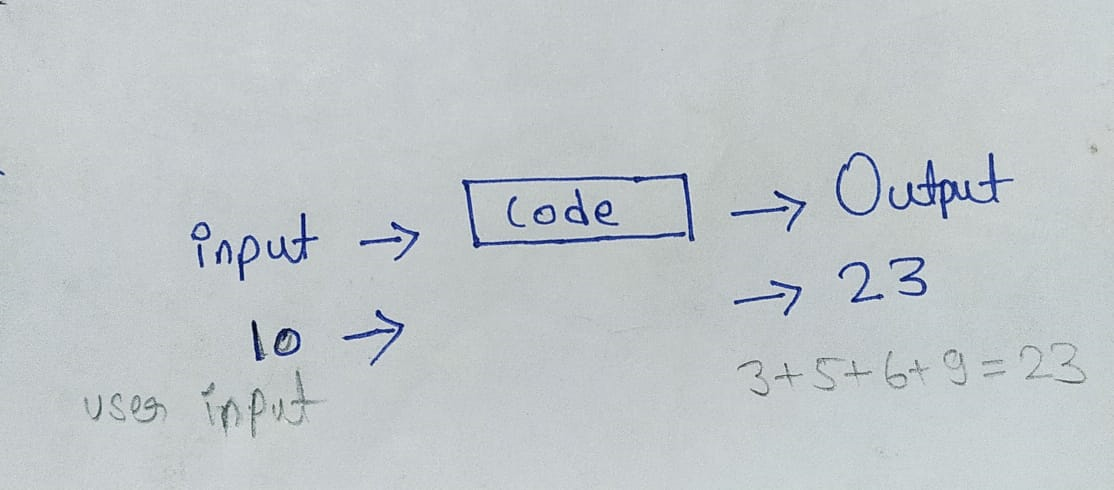 input → Code → Output
10 → → 23
user input 3+5+6+9=23